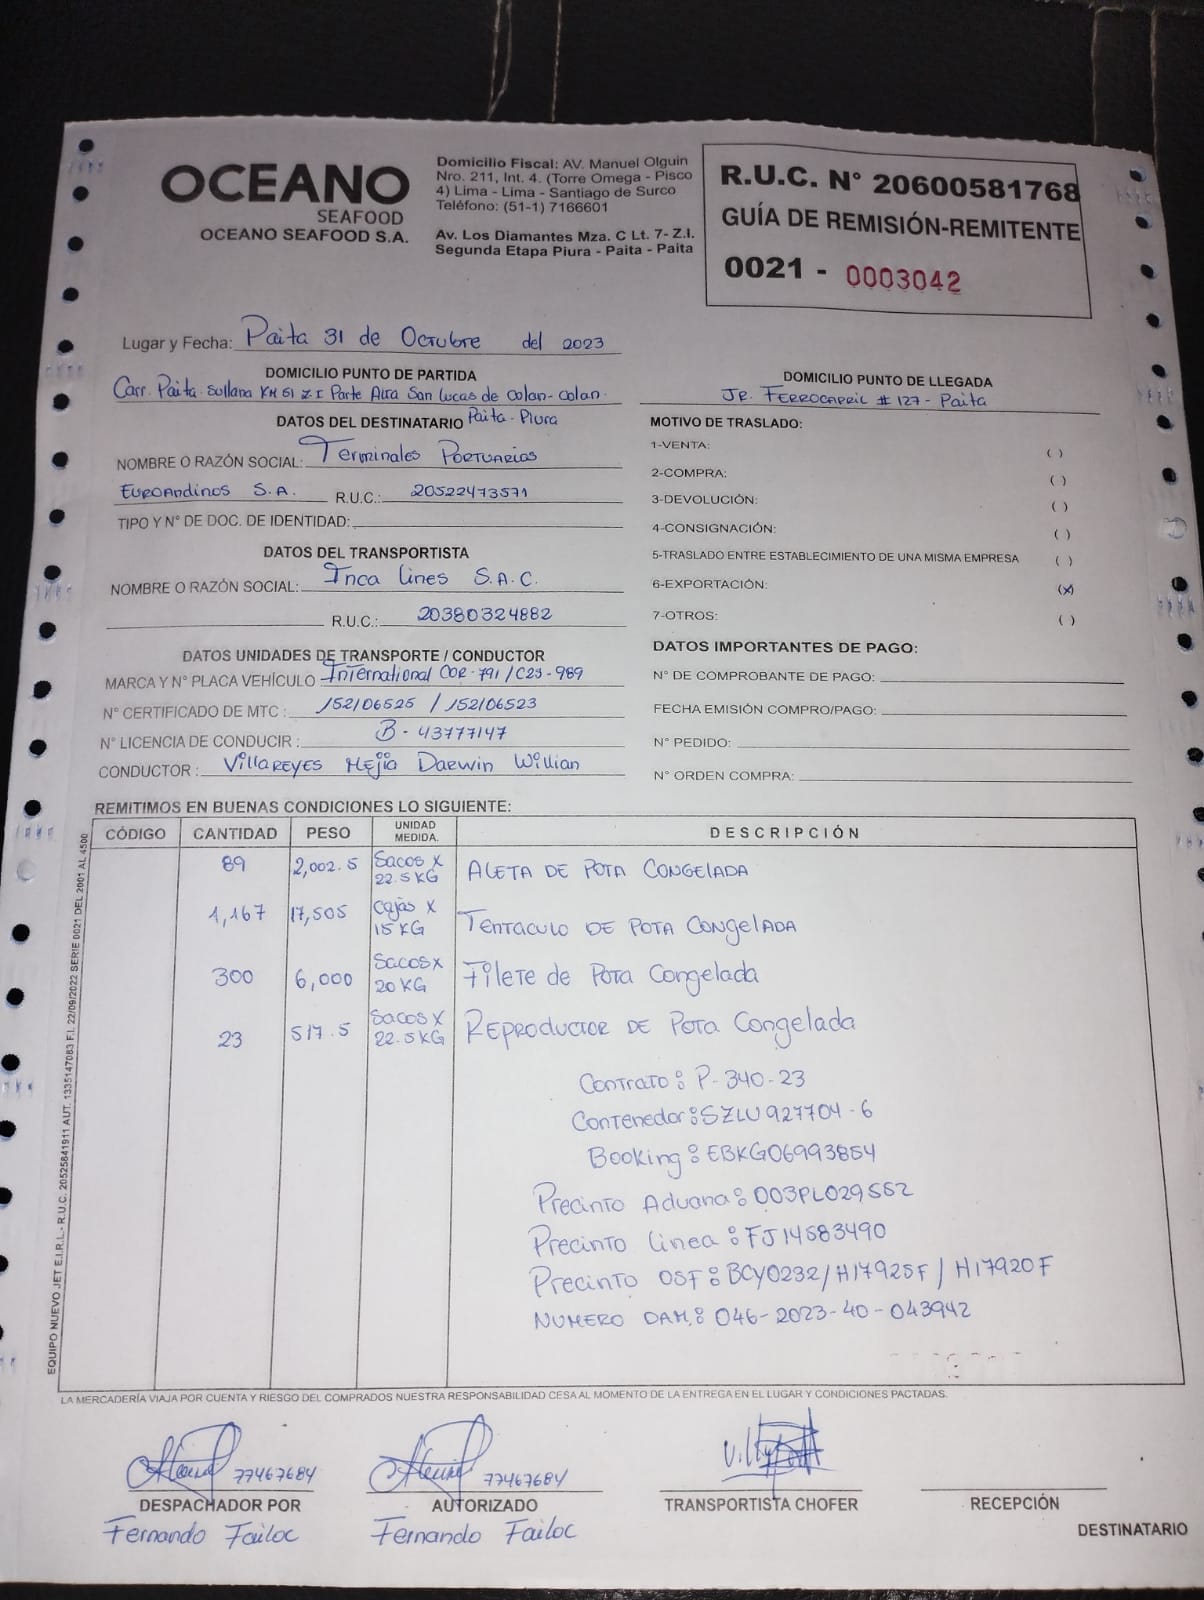 OCEANO
SEAFOOD
OCEANO SEAFOOD S.A.
Domicilio Fiscal: AV. Manuel Olguin
Nro. 211, Int. 4. (Torre Omega - Pisco
4) Lima - Lima - Santiago de Surco
Teléfono: (51-1) 7166601
Av. Los Diamantes Mza. C Lt. 7- Z.I.
Segunda Etapa Piura - Paita - Paita
R.U.C. N° 20600581768
GUÍA DE REMISIÓN-REMITENTE
0021 - 0003042
Lugar y Fecha: Paita 31 de Octubre del 2023
DOMICILIO PUNTO DE PARTIDA
Carr. Paita-Sullana KM 51 Z.I Parte Alta San Lucas de Colan-Colan-
Paita-Piura
DOMICILIO PUNTO DE LLEGADA
JR. FERROCARRIL # 127 - Paita
DATOS DEL DESTINATARIO
NOMBRE O RAZÓN SOCIAL: Terminales Portuarios
Euroandinos S.A. R.U.C.: 20522473571
TIPO Y N° DE DOC. DE IDENTIDAD:
DATOS DEL TRANSPORTISTA
NOMBRE O RAZÓN SOCIAL: Inca Lines S.A.C.
R.U.C.: 20380324882
DATOS UNIDADES DE TRANSPORTE / CONDUCTOR
MARCA Y N° PLACA VEHÍCULO International COR-791/C2J-989
N° CERTIFICADO DE MTC : 152106525 / 152106523
N° LICENCIA DE CONDUCIR : B - 43777147
CONDUCTOR : Villareyes Mejia Darwin Willian
MOTIVO DE TRASLADO:
1-VENTA: ( )
2-COMPRA: ( )
3-DEVOLUCIÓN: ( )
4-CONSIGNACIÓN: ( )
5-TRASLADO ENTRE ESTABLECIMIENTO DE UNA MISMA EMPRESA ( )
6-EXPORTACIÓN: (x)
7-OTROS: ( )
DATOS IMPORTANTES DE PAGO:
N° DE COMPROBANTE DE PAGO:
FECHA EMISIÓN COMPRO/PAGO:
N° PEDIDO:
N° ORDEN COMPRA:
REMITIMOS EN BUENAS CONDICIONES LO SIGUIENTE:
CÓDIGO CANTIDAD PESO UNIDAD MEDIDA. DESCRIPCIÓN
89 2,002.5 Sacos x 22.5 KG ALETA DE POTA CONGELADA
1,167 17,505 Cajas x 15 KG Tentaculo DE POTA CongelADA
300 6,000 Sacos x 20 KG Filete de Pota Congelada
23 517.5 Sacos x 22.5 KG REPRODUCTOR DE Pota Congelada
Contrato: P-340-23
Contenedor: SZLU 927704-6
Booking: EBKG06993854
Precinto Aduana: 003PL029552
Precinto Linea: FJ14583490
Precinto OSF: BCY0232/H17925F/H17920F
NUMERO DAM.: 046-2023-40-043942
EQUIPO NUEVO JET E.I.R.L.- R.U.C. 20525841911 AUT. 1335147083 F.I. 22/09/2022 SERIE 0021 DEL 2001 AL 4500
LA MERCADERÍA VIAJA POR CUENTA Y RIESGO DEL COMPRADOS NUESTRA RESPONSABILIDAD CESA AL MOMENTO DE LA ENTREGA EN EL LUGAR Y CONDICIONES PACTADAS.
77467684 77467684
DESPACHADOR POR AUTORIZADO TRANSPORTISTA CHOFER RECEPCIÓN
Fernando Failoc Fernando Failoc
DESTINATARIO